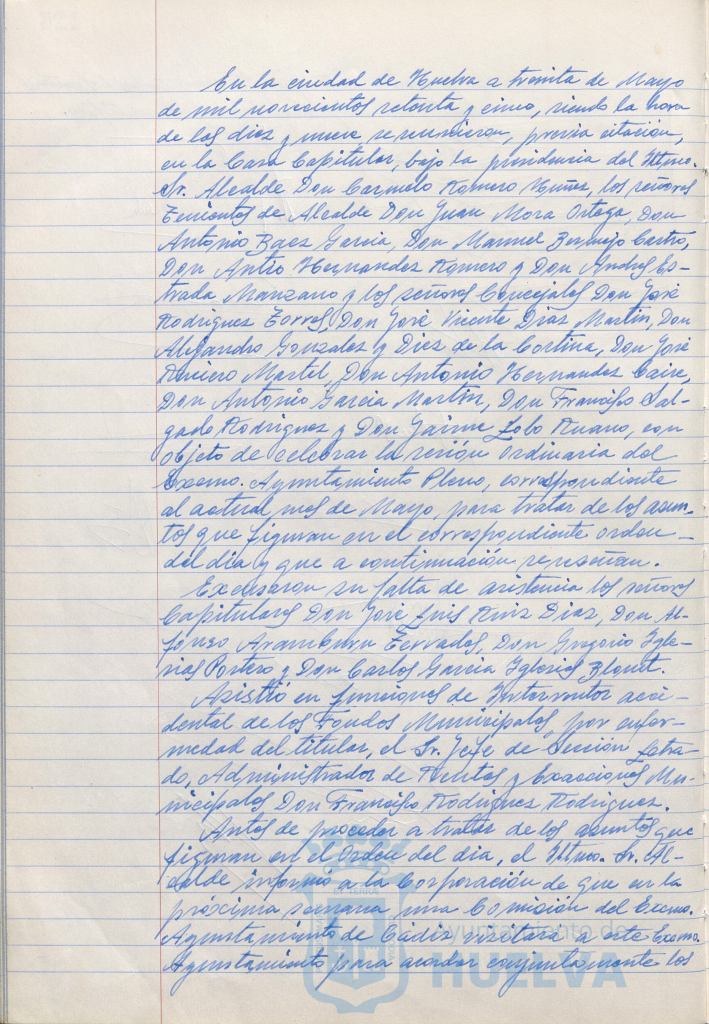 En la ciudad de Huelva a treinta de Mayo
de mil novecientos setenta y cinco, siendo la hora
de las diez y nueve se reunieron, previa citación,
en la Casa Capitular, bajo la presidencia del Iltmo.
Sr. Alcalde Don Carmelo Romero Núñez, los señores
Tenientes de Alcalde Don Juan Mora Ortega, Don
Antonio Baez Garcia, Don Manuel Bermejo Castro,
Don Antio Hernandez Romero y Don Andres Es-
trada Manzano y los señores Concejales Don José
Rodriguez Torres, Don José Vicente Diaz Martin, Don
Alejandro Gonzalez y Diez de la Cortina, Don José
Riviero Martel, Don Antonio Hernandez Caire,
Don Antonio Garcia Martin, Don Francisco Sal-
gado Rodriguez y Don Jaime Lobo Ruano, con
objeto de celebrar la sesión ordinaria del
Excmo. Ayuntamiento Pleno, correspondiente
al actual mes de Mayo, para tratar de los asun-
tos que figuran en el correspondiente orden
del dia y que a continuación se reseñan.
Excusaron su falta de asistencia los señores
Capitulares Don José Luis Ruiz Diaz, Don Al-
fonso Aramburu Terrades, Don Gregorio Igle-
sias Portero y Don Carlos Garcia Iglesias Blonet.
Asistió en funciones de Interventor acci-
dental de los Fondos Municipales, por enfer-
medad del titular, el Sr. Jefe de Sección Letra-
do, Administrador de Rentas y Exacciones Mu-
nicipales Don Francisco Rodriguez Rodriguez.
Antes de proceder a tratar de los asuntos que
figuran en el Orden del dia, el Iltmo. Sr. Al-
calde informó a la Corporación de que en la
próxima semana una Comisión del Excmo.
Ayuntamiento de Cádiz visitará a este Excmo.
Ayuntamiento para acordar conjuntamente los
Ayuntamiento de
HUELVA